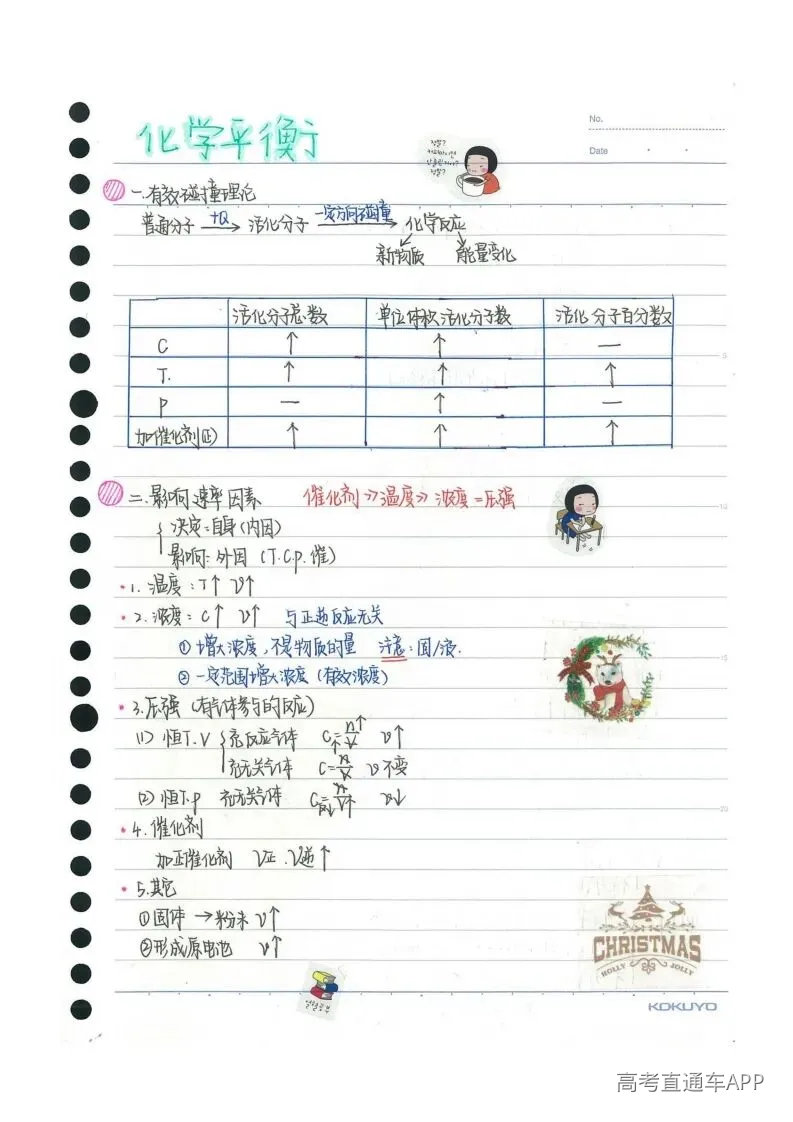 化学平衡
No.
Date
一.有效碰撞理论
普通分子 +Q→ 活化分子 一定方向碰撞→ 化学反应
新物质 能量变化
活化分子总数 单位体积活化分子数 活化分子百分数
C ↑ ↑ —
T. ↑ ↑ ↑
P — ↑ —
加催化剂(正) ↑ ↑ ↑
二.影响速率因素 催化剂》温度》浓度=压强
决定:自身(内因)
影响:外因 (T.C.p.催)
1.温度:T↑ v↑
2.浓度:C↑ v↑ 与正逆反应无关
①增大浓度,不是物质的量 注意:固/液.
②一定范围增大浓度(有效浓度)
3.压强(有气体参与的反应)
(1)恒T.V 充反应气体 C↑=n↑/V v↑
充无关气体 C=n/V v不变
(2)恒T.p 充无关气体 C↓=n/V↑ v↓
4.催化剂
加正催化剂 V正.V逆↑
5.其它
①固体→粉末 v↑
②形成原电池 v↑
CHRISTMAS
HOLLY JOLLY
KOKUYO
5
10
15
20
高考直通车APP